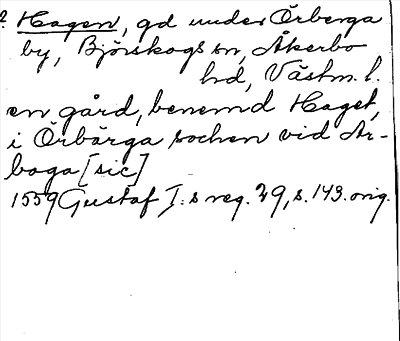 2. Hagen, gd under Örberga
by, Björskogs sn, Åkerbo
hd, Västm. l.
en gård, benemd Haget,
i Örbärga sochen vid Ar-
boga [sic]
1559 Gustaf I:s reg. 29, s. 143. orig.